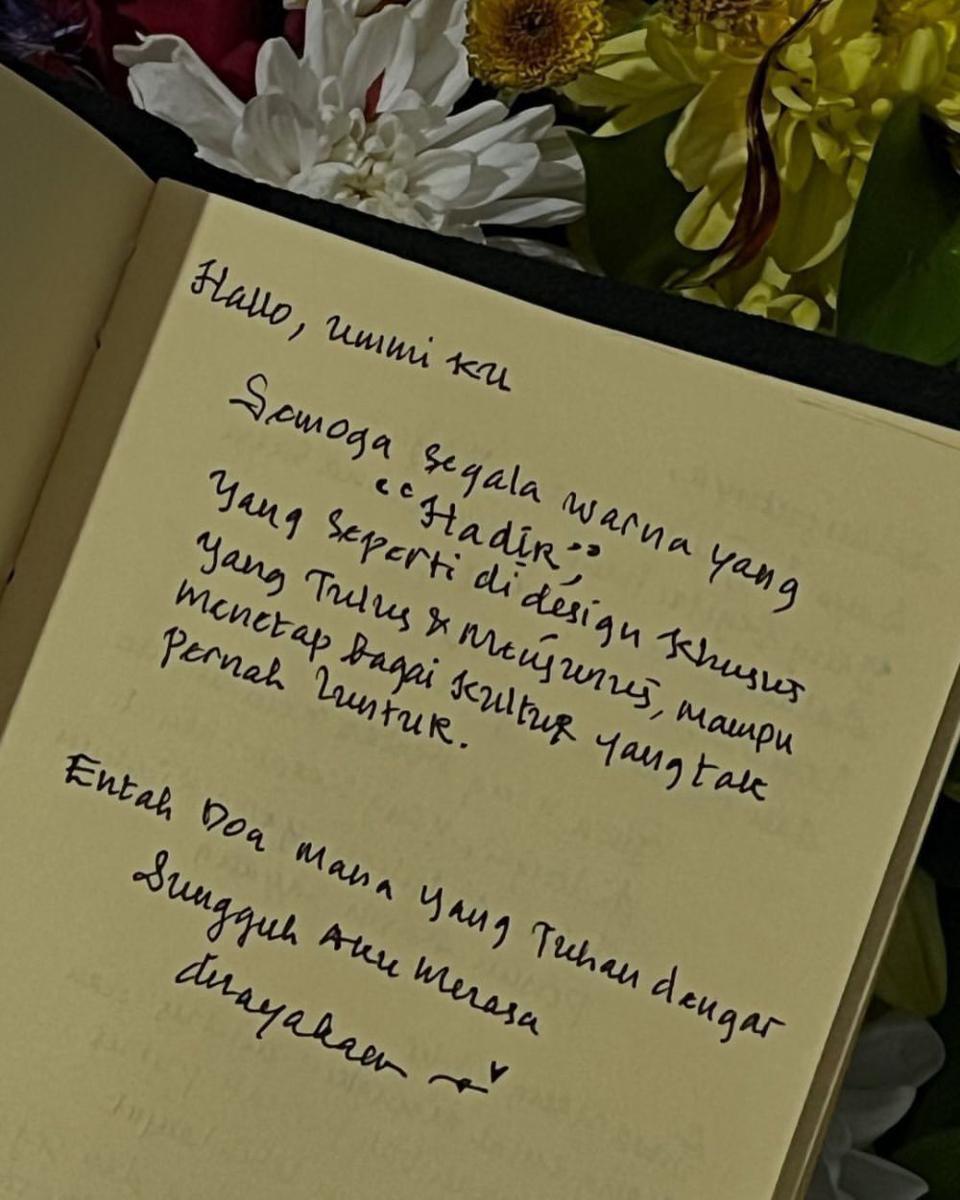 Hallo, ummi ku
Semoga segala warna yang
"Hadir",
Yang seperti di design khusus
yang Tulus & menjurus, mampu
menetap bagai kultur yang tak
pernah luntur.
Entah Doa mana yang Tuhan dengar
Sungguh Aku merasa
dirayakan